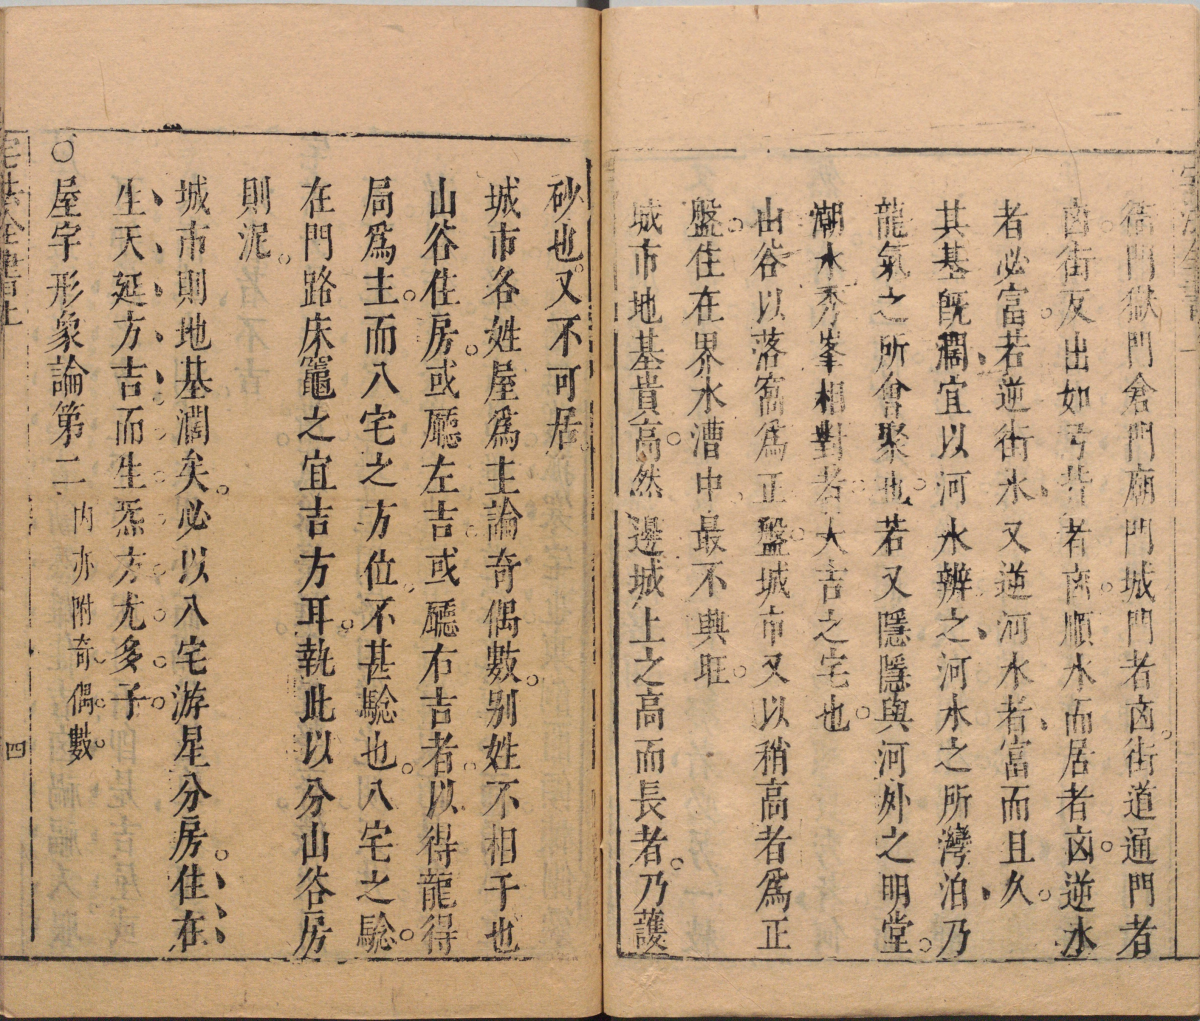 衙門獄門倉門廟門城門者凶街道通門者
凶街反出如弓背者凶順水而居者凶逆水
者必富若逆街水又逆河水者富而且久
其基既濶宜以河水辨之河水之所灣泊乃
龍氣之所會聚也若又隱隱與河外之明堂
潮水秀峯相對者大吉之宅也
山谷以落窩為正盤城市又以稍高者為正
盤住在界水漕中最不興旺
城市地基貴高然邊城上之高而長者乃護
砂也又不可居
城市各姓屋為主論奇偶數別姓不相干也
山谷住房或廳左吉或廳右吉者以得龍得
局為主而八宅之方位不甚騐也八宅之騐
在門路床竈之宜吉方耳執此以分山谷房
則泥
城市則地基濶矣必以八宅游星分房住在
生天延方吉而生炁方尤多子
○屋字形象論第二 内亦附奇偶數
宅法全書上
四